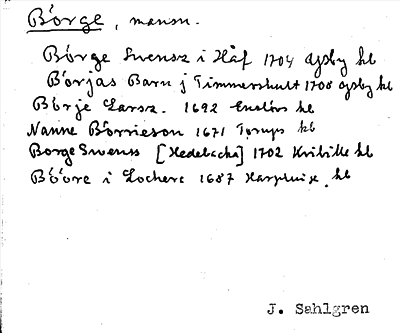 Börge, mansn.
Börge Svensz i Håf 1704 Gjsby kb
Börjas Barn j Timmershult 1708 Gjsby kb
Börje Larsz. 1692 Enslöv kb
Nanne Börrieson 1671 Torups kb
Borge Swenss [Hedebacka] 1702 Kvibille kb
Bööre i 1687 kb
J. Sahlgren